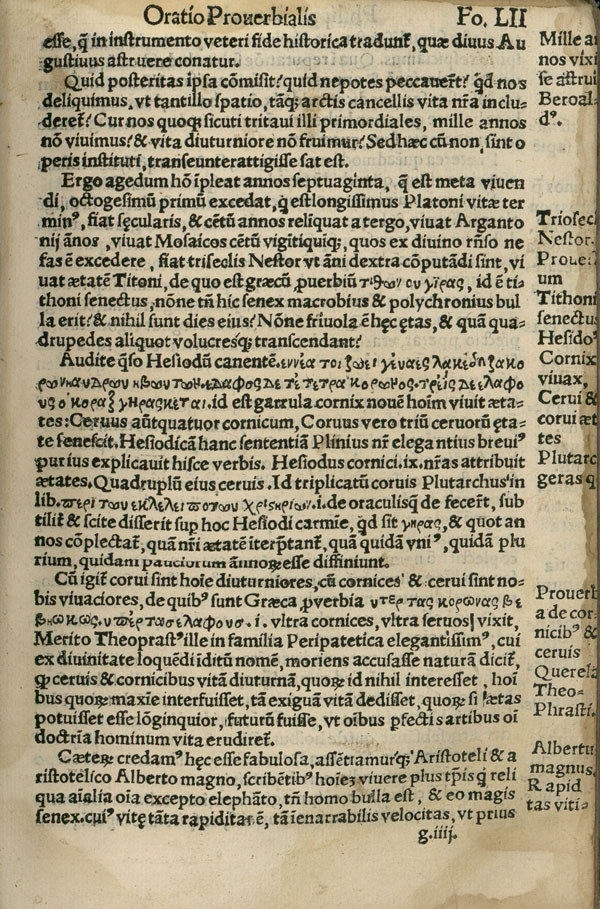 Oratio Prouerbialis Fo. LII
esse, q̃ in instrumento veteri fide historica tradunt̃, quæ diuus Au
gustiuus astruere conatur.
Quid posteritas ipsa cõmisit? quid nepotes peccauer̃t? q̃d nos
deliquimus, vt tantillo spatio, tãq̃ arctis cancellis vita nr̃a inclu-
deret̃? Cur nos quoqꝫ sicuti tritaui illi primordiales, mille annos
nõ viuimus? & vita diuturniore nõ fruimur? Sed hæc cũ non sint o
peris instituti, transeunter attigisse sat est.
Ergo agedum hõ ĩpleat annos septuaginta, q̃ est meta viuen
di, octogesimũ primũ excedat, q̃ est longissimus Platoni vitæ ter
minꝰ, fiat sęcularis, & cẽtũ annos relĩquat a tergo, viuat Arganto
nij ãnos, viuat Mosaicos cẽtũ vigĩtiquĩqꝫ, quos ex diuino rñso ne
fas ẽ excedere, fiat trisec̃lis Nestor vt ãni dextra cõputãdi sint, vi
uat ætatẽ Titoni, de quo est græcũ ꝓuerbiũ τιθωνου γῖρας, id ẽ ti-
thoni senectus, nõne tñ hic senex macrobius & polychronius bul
la erit? & nihil sunt dies eius? Nõne friuola ẽ hęc ętas, & quã qua-
drupedes aliquot volucresqꝫ transcendant?
Audite q̃so Hesiodũ canentẽ. εννέα τοι ζωει γένεας λακέρηζα κο
ρωνη ανδρων ηβωντων. ελαφος δε τέ τετρακόρωνος. τρεῖς δε ελαφο
υς ο κόραξ γηρασκεται. id est garrula cornix nouẽ hoĩm viuit æta-
tes: Ceruus aũt quatuor cornicum, Coruus vero triũ ceruorũ ęta-
te senescit. Hesiodicã hanc sententiã Plinius nr̃ elegantius breuiꝰ
purius explicauit hisce verbis. Hesiodus cornici.ix. nr̃as attribuit
ætates. Quadruplũ eius ceruis. Id triplicatũ coruis Plutarchus in
lib. περι των εκλελειποτων χριςηριων .i. de oraculis q̃ defecer̃t, sub
tilit̃ & scite disserit suꝑ hoc Hesiodi carmĩe, q̃d sit γηρας, & quot an
nos cõplectat̃, quã nr̃i ætatẽ iterp̃tant̃, quã quidã vniꝰ, quidã plu
rium, quidam pauciorum annoꝝ esse diffiniunt.
Cũ igit̃ corui sint hoĩe diuturniores, cũ cornices & cerui sint no-
bis viuaciores, de quibꝰ sunt Græca ꝓuerbia υπερτας κορωνας βε
βιωκως. υπερτας ελαφους. i. vltra cornices, vltra seruos vixit,
Merito Theoprastꝰ ille in familia Peripatetica elegantissimꝰ, cui
ex diuinitate loquẽdi ĩditũ nomẽ, moriens accusasse naturã dicit̃,
ꝙ ceruis & cornicibus vitã diuturnã, quoꝝ id nihil interesset, hoĩ
bus quoꝝ maxĩe interfuisset, tã exiguã vitã dedisset, quoꝝ si ætas
potuisset esse lõginquior, futurũ fuisse, vt oĩbus ꝑfectis artibus oĩ
doctrĩa hominum vita erudiret̃.
Cæteꝝ credamꝰ hęc esse fabulosa, assẽtiamurqꝫ Aristoteli & a
ristotelico Alberto magno, scribẽtibꝰ hoĩeꝫ viuere plus tꝑis q̃ reli
qua aĩalia oĩa excepto elephãto, tñ homo bulla est, & eo magis
senex. cuiꝰ vitę tãta rapiditas ẽ, tã ienarrabilis velocitas, vt prius
g.iiij.
Mille a
nos vixi
se astrui
Beroal
dꝰ.
Triosec
Nestor.
Proue
um
Tithoni
senectus
Hesido
Cornix
viuax,
Cerui &
corui æt
tes
Plutarc
geras q
Prouerb
a de cor
nicibꝰ &
ceruis
Querela
Theo-
Phrasti.
Albertu
magnus
Rapid
tas viti-